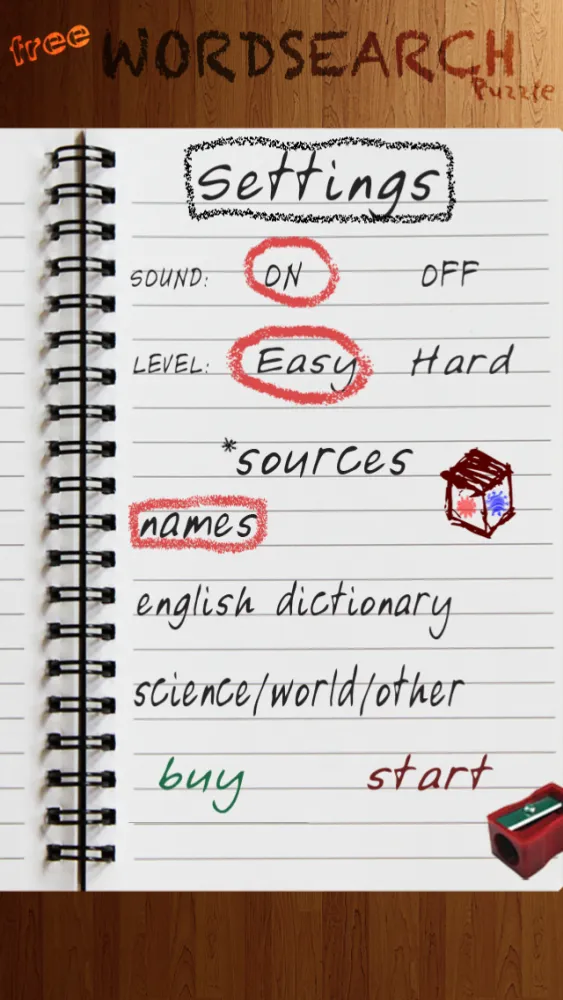 free WORDSEARCH
Puzzle
Settings
SOUND: ON OFF
LEVEL: Easy Hard
*sources
names
english dictionary
science/world/other
buy start